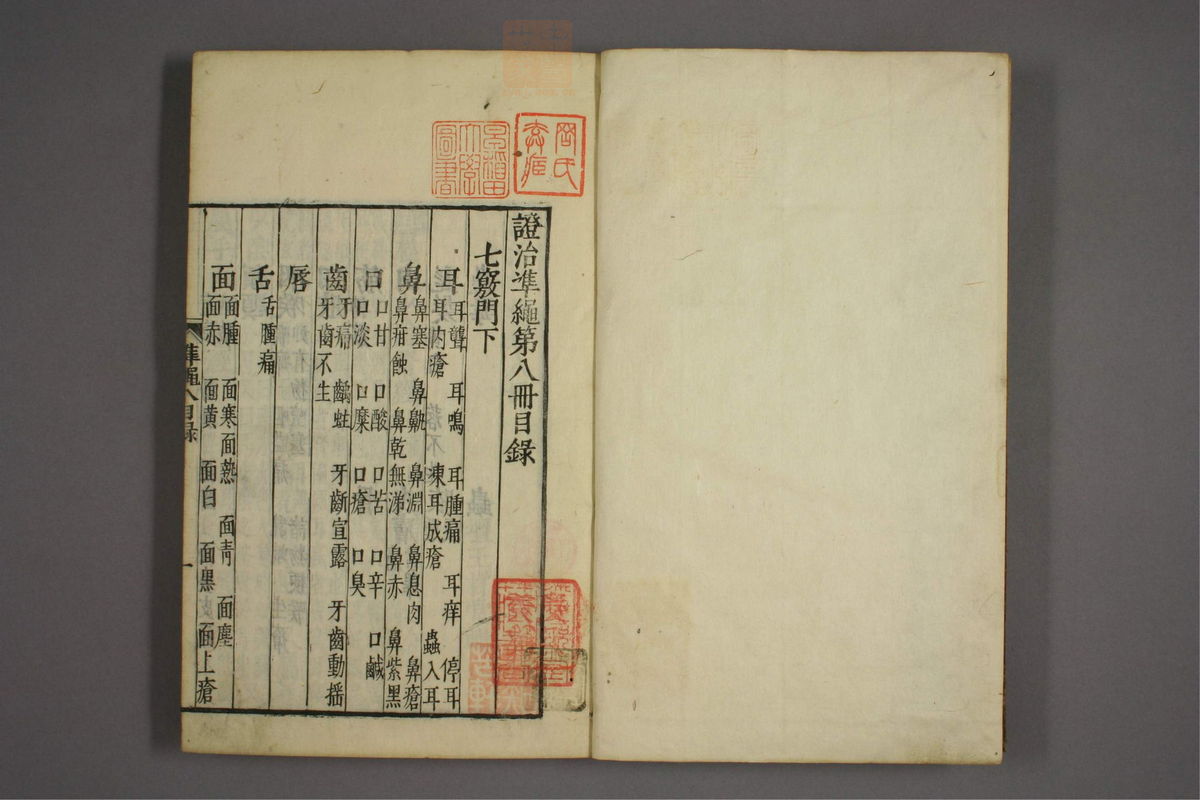 證治準繩第八冊目錄
七竅門下
耳 耳聾 耳鳴 耳腫痛 耳痒 停耳
耳內瘡 凍耳成瘡 蟲入耳
鼻 鼻塞 鼻鼽 鼻淵 鼻息肉 鼻瘡
鼻疳蝕 鼻乾無涕 鼻赤 鼻紫黑
口 口甘 口酸 口苦 口辛 口鹹
口淡 口糜 口瘡 口臭
齒 牙痛 齲蛀 牙齗宣露 牙齒動搖
牙齒不生
唇
舌 舌腫痛
面 面腫 面寒面熱 面青 面塵
面赤 面黃 面白 面黑 面上瘡
準繩八目錄 一